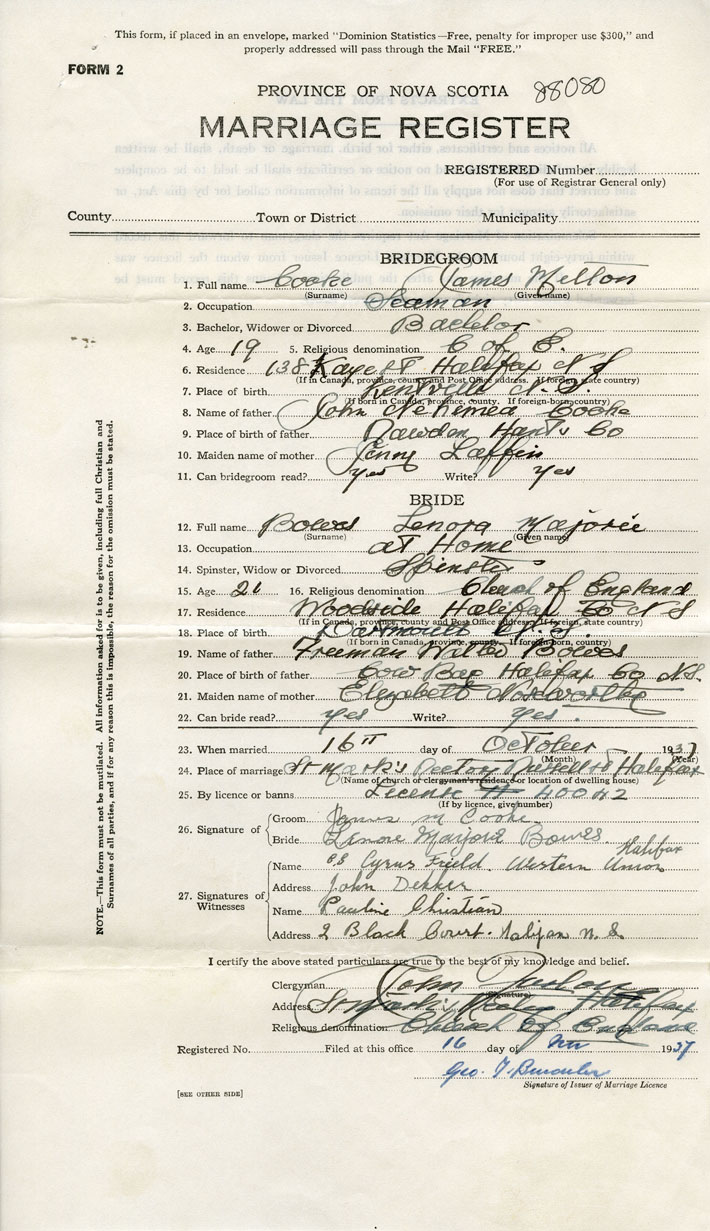 This form, if placed in an envelope, marked "Dominion Statistics—Free, penalty for improper use $300," and
properly addressed will pass through the Mail "FREE."
FORM 2
PROVINCE OF NOVA SCOTIA 88080
MARRIAGE REGISTER
REGISTERED Number
(For use of Registrar General only)
County Town or District Municipality
BRIDEGROOM
1. Full name Cooke James Mellon
(Surname) (Given name)
2. Occupation Seaman
3. Bachelor, Widower or Divorced Bachelor
4. Age 19 5. Religious denomination C of E.
6. Residence 138 Kaye St Halifax N S
(If in Canada, province, county and Post Office address. If foreign, state country)
7. Place of birth Kentville N. S.
(If born in Canada, province, county. If foreign-born, country)
8. Name of father John Nehemea Cooke
9. Place of birth of father Rawdon Hants Co
10. Maiden name of mother Jenny Laffin
11. Can bridegroom read? yes Write? yes
BRIDE
12. Full name Bowes Lenora Marjorie
(Surname) (Given name)
13. Occupation at Home
14. Spinster, Widow or Divorced Spinster
15. Age 21 16. Religious denomination Church of England
17. Residence Woodside Halifax Co N S
(If in Canada, province, county and Post Office address. If foreign, state country)
18. Place of birth Dartmouth N. S.
(If born in Canada, province, county. If foreign-born, country)
19. Name of father Freeman Walter Bowes
20. Place of birth of father Cow Bay Halifax Co N.S.
21. Maiden name of mother Elizabeth
22. Can bride read? yes Write? yes.
23. When married 16th day of October 1937
(Month) (Year)
24. Place of marriage St Mark's Rectory Russell St Halifax
(Name of church or clergyman's residence, or location of dwelling house)
25. By licence or banns License # 40042
(If by licence, give number)
26. Signature of
Groom James M Cooke.
Bride Lenore Marjorie Bowes.
27. Signatures of Witnesses
Name SS Cyrus Field. Western Union Halifax
Address John Dekker
Name Pauline Christian
Address 2 Black Court. Halifax N. S.
I certify the above stated particulars are true to the best of my knowledge and belief.
Clergyman John Furlong
(Signature)
Address St Mark's Rectory Halifax
Religious denomination Church Of England
Registered No. Filed at this office 16 day of Nov 1937
Geo. T.
Signature of Issuer of Marriage Licence
[SEE OTHER SIDE]
NOTE.—This form must not be mutilated. All information asked for is to be given, including full Christian and
Surnames of all parties, and if for any reason this is impossible, the reason for the omission must be stated.